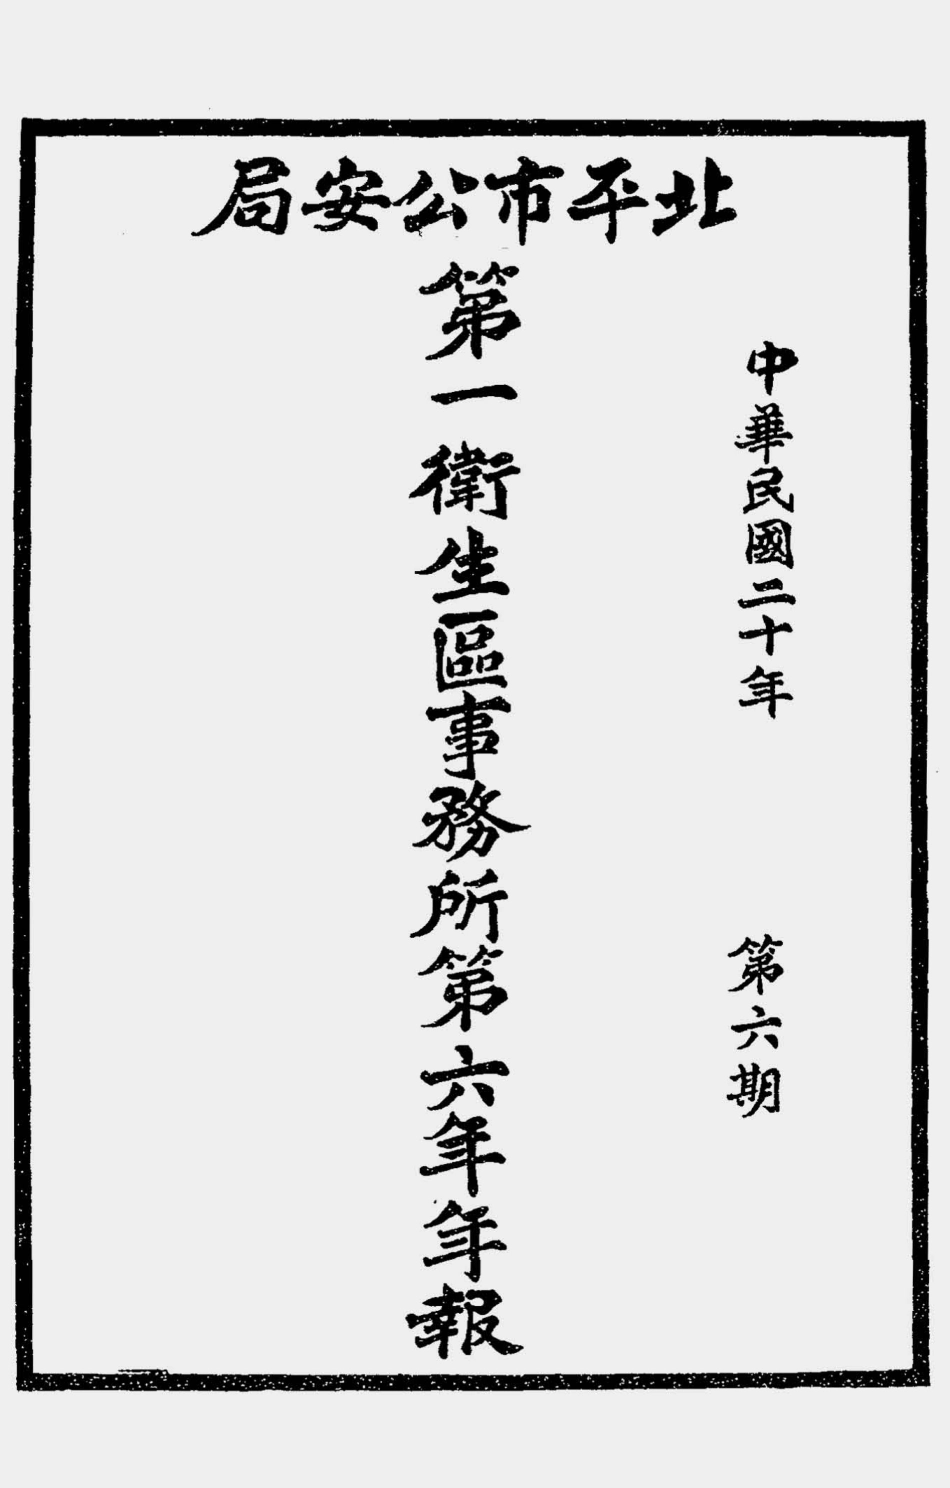 北平市公安局
中華民國二十年
第六期
第一衛生區事務所第六年年報